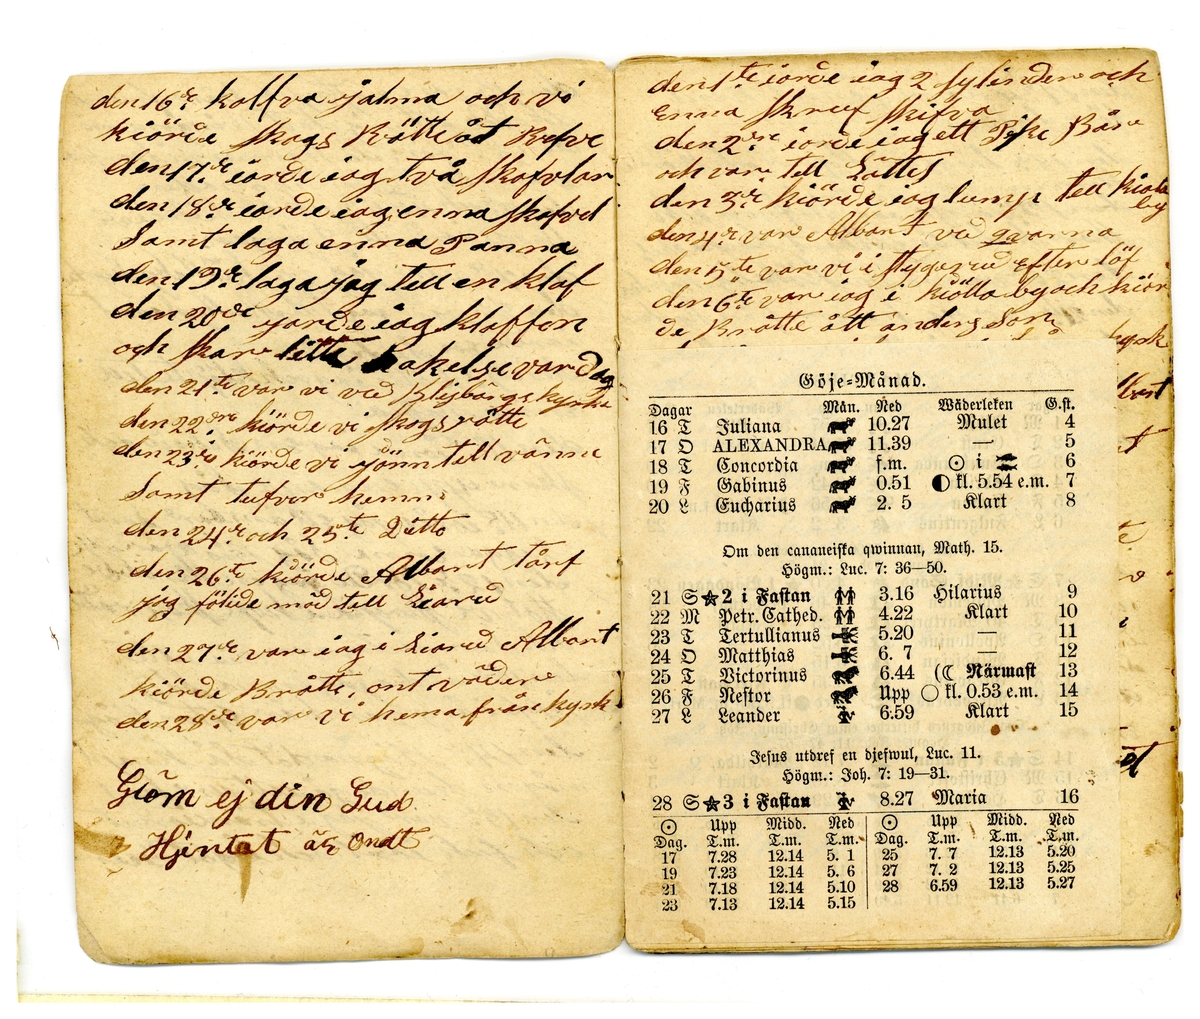 den 16de kalfva jalma och vi
kiörde skogs Kråtte åt Refve
den 17de iorde iag två skofvlar
den 18de iorde iag enna skofvel
Samt laga enna Panna
den 19de laga jag tell en klaf
den 20de jorde iag klaffen
och skar litte hakelse var dag
den 21te var vi ved kyrka
den 22dre kiörde vi skogs råtte
den 23je kiörde vi tell vänna
Samt tufvor hemm
den 24de och 25te Ditto
den 26te kiörde Albart tårf
jag fölide mäd tell Liared
den 27de var iag i Liared Albart
kiörde Kråtte, ont väder
den 28de var vi hema från kyrk
Glöm ej din Gud
Hjertat är Ondt
den 1te iorde iag 2 sylinder och
Enna skruf skifva
den 2dre iorde iag ett Båre
och var tell
den 3de kiörde iag lump tell
by
den 4de var Albart ved qvarna
den 5te var vi i efter löf
den 6te var iag i by och kiör
de Kråtte ått anders Son
Göje-Månad.
Dagar Mån. Ned Wäderleken G.st.
16 T Juliana 10.27 Mulet 4
17 O ALEXANDRA 11.39 — 5
18 T Concordia f.m. ☉ i ♓ 6
19 F Gabinus 0.51 ◐ kl. 5.54 e.m. 7
20 L Eucharius 2. 5 Klart 8
Om den cananeiska qwinnan, Math. 15.
Högm.: Luc. 7: 36—50.
21 S ★ 2 i Fastan 3.16 Hilarius 9
22 M Petr. Cathed. 4.22 Klart 10
23 T Tertullianus 5.20 — 11
24 O Matthias 6. 7 — 12
25 T Victorinus 6.44 (☾ Närmast 13
26 F Nestor Upp ○ kl. 0.53 e.m. 14
27 L Leander 6.59 Klart 15
Jesus utdref en djefwul, Luc. 11.
Högm.: Joh. 7: 19—31.
28 S ★ 3 i Fastan 8.27 Maria 16
☉ Upp Midd. Ned ☉ Upp Midd. Ned
Dag. T.m. T.m. T.m. Dag. T.m. T.m. T.m.
17 7.28 12.14 5. 1 25 7. 7 12.13 5.20
19 7.23 12.14 5. 6 27 7. 2 12.13 5.25
21 7.18 12.14 5.10 28 6.59 12.13 5.27
23 7.13 12.14 5.15